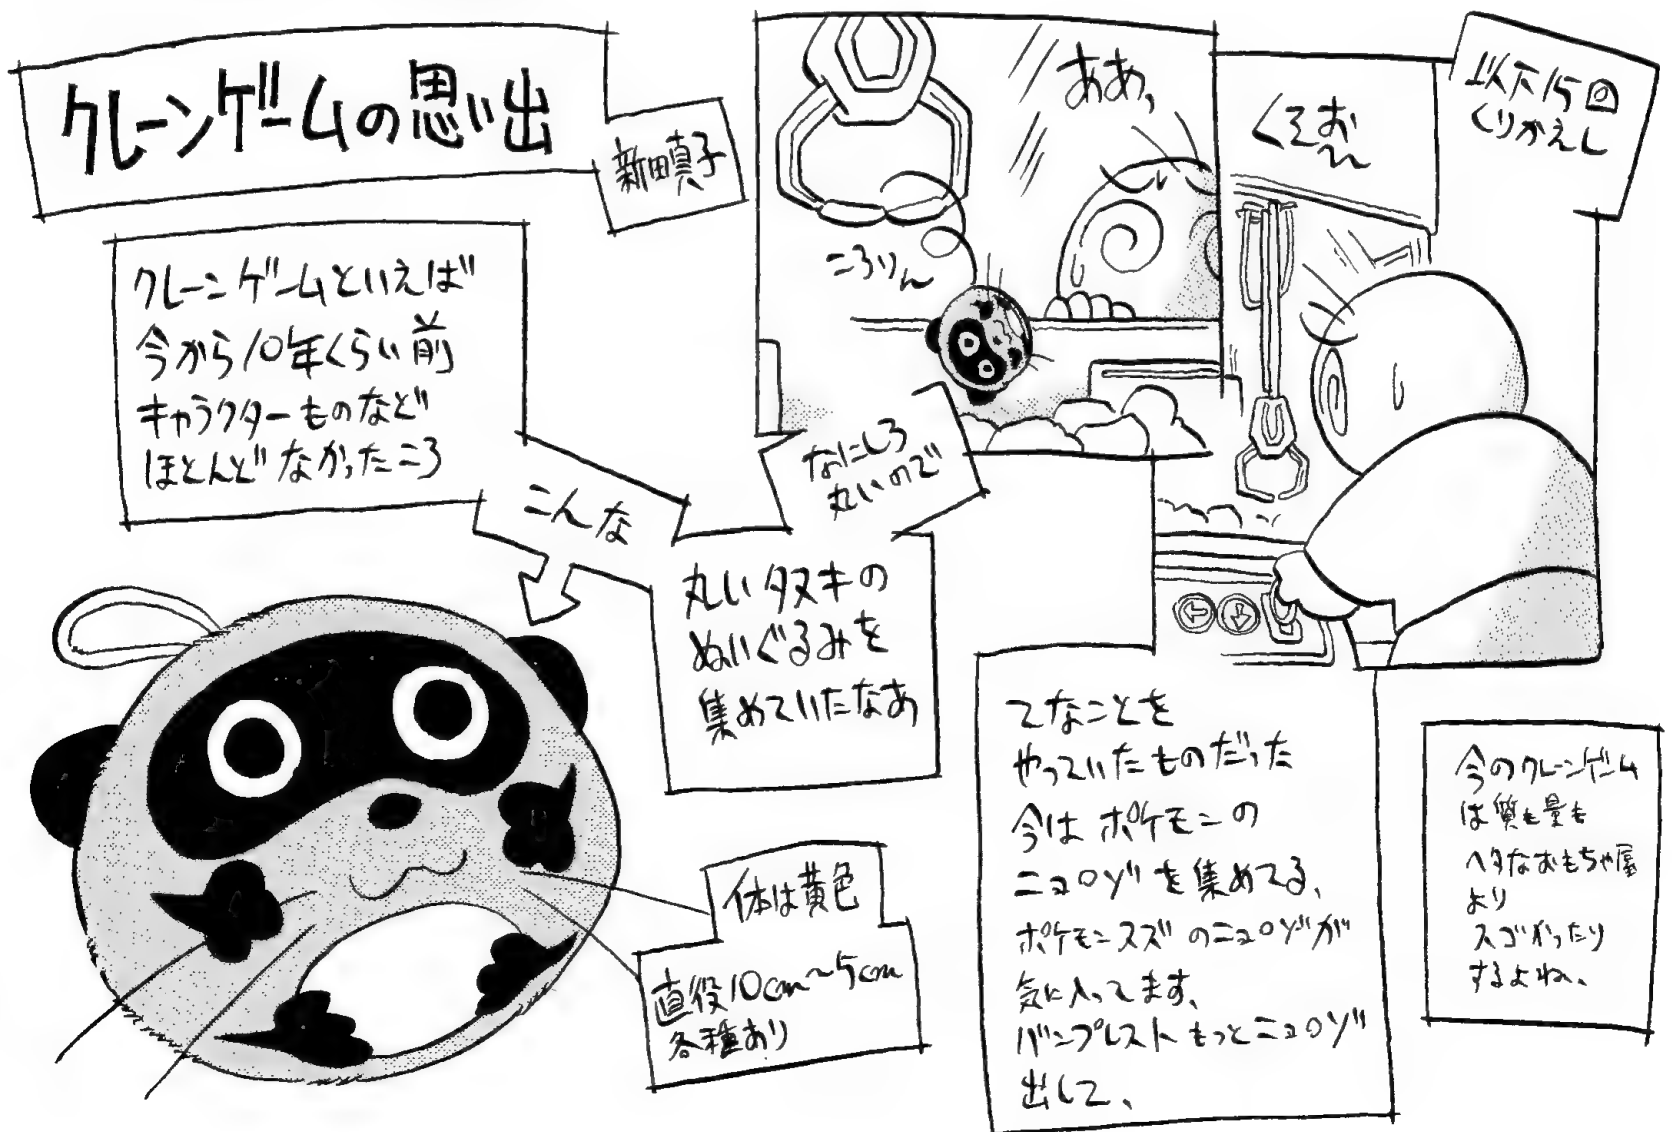 クレーンゲームの思い出
新田真子
クレーンゲームといえば
今から10年くらい前
キャラクターものなど
ほとんどなかったころ
こんな
丸いタヌキの
ぬいぐるみを
集めていたなあ
体は黄色
直役10cm〜5cm
各種あり
なにしろ
丸いので
ああ、
ころりん
くそお〜
以下15回
くりかえし
てなことを
やっていたものだった
今はポケモンの
ニョロゾを集めてる、
ポケモンスズのニョロゾが
気に入ってます、
バンプレストもっとニョロゾ
出して、
今のクレーンゲーム
は質も量も
ヘタなおもちゃ屋
より
スゴかったり
するよね、